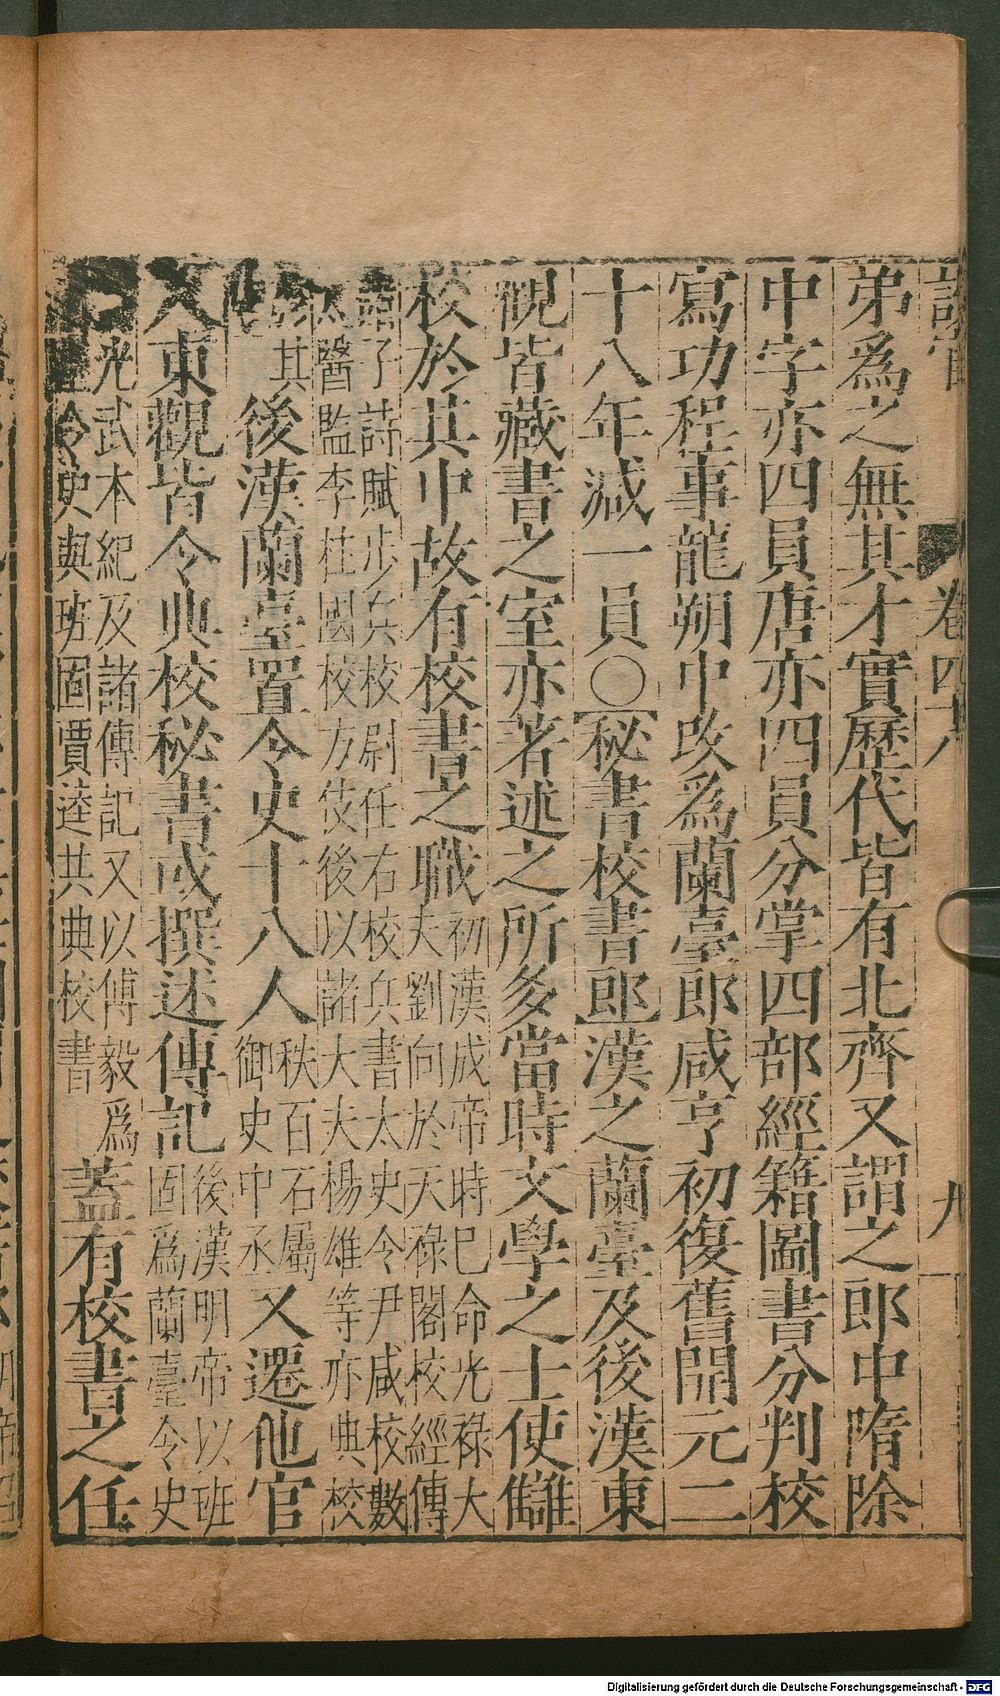 卷四十八 九
弟爲之無其才實歷代皆有北齊又謂之郎中隋除
中字亦四員唐亦四員分掌四部經籍圖書分判校
寫功程事龍朔中改爲蘭臺郎咸亨初復舊開元二
十八年減一員〇【秘書校書郎】漢之蘭臺及後漢東
觀皆藏書之室亦著述之所多當時文學之士使讎
校於其中故有校書之職初漢成帝時已命光祿大
夫劉向於天祿閣校經傳
諸子詩賦步兵校尉任右校兵書太史令尹咸校數
太醫監李柱國校方伎後以諸大夫楊雄等亦典校
其後漢蘭臺置令史十八人秩百石屬
御史中丞又遷他官
入東觀皆令典校秘書或撰述傳記後漢明帝以班
固爲蘭臺令史
光武本紀及諸傳記又以傅毅爲
令史與班固賈逵共典校書蓋有校書之任
Digitalisierung gefördert durch die Deutsche Forschungsgemeinschaft - DFG